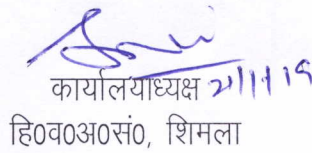 कार्यालयाध्यक्ष 21/1/19
हि0व0अ0सं0, शिमला